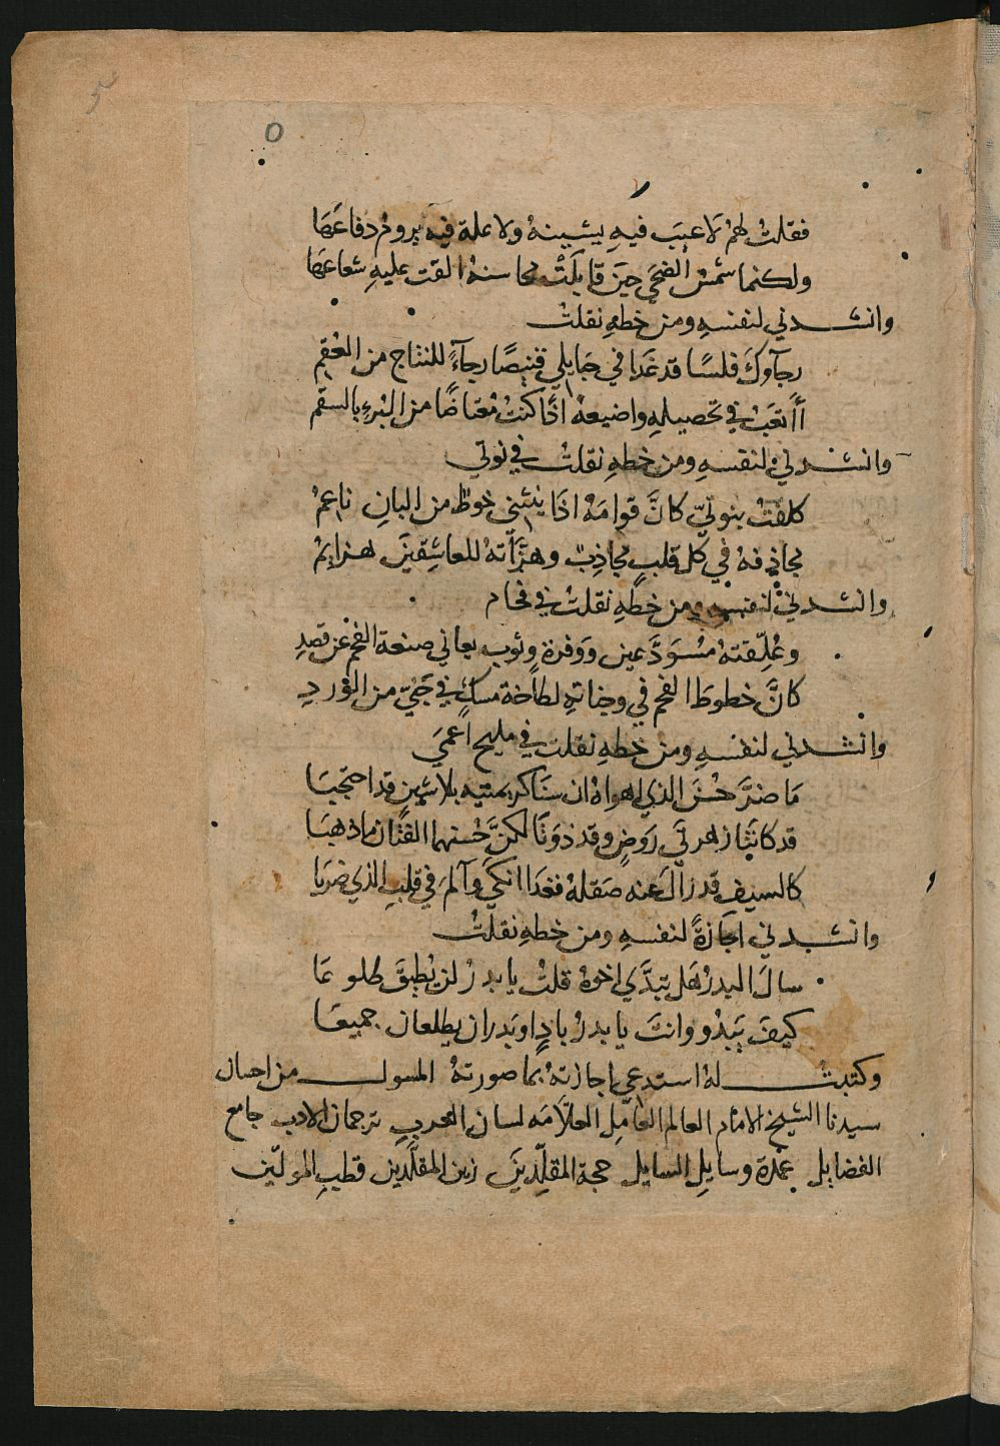 ٥
فقلتُ لهمْ لَا عيبَ فيهِ يشينهُ ولا علة فيه يرومُ دفاعَهَا
ولكنما شمسُ الضحَى حينَ قابلَتْ محاسنهُ القت عليهِ شعاعهَا
وانشدني لنفسهِ ومن خطهِ نقلتُ
رجآوكَ فلسًا قد غَدَا في حَبايلي قنيصًا رجآءً للنتاج من العُقمِ
أأتعَبُ في تحصيلهِ واضيعهُ اذًا كنتُ مُعتاضًا من البُرءِ بالسقم
وانشدني لنفسهِ ومن خطهِ نقلتُ في نوتي
كلفتُ بنوتيّ كانَّ قوامَهُ اذَا ينثني خوطٌ من البانِ ناعمُ
مجاذفهُ في كل قلبٍ مجاذبٌ وهزَّاتهُ للعاشقينَ هزايمُ
وانشدني لنفسه ومن خطهِ نقلتُ في فحام
وعُلّقتهُ مُسْوَدَّ عينٍ ووفرةٍ وثوبٍ يعاني صنعة الفحم عن قصدِ
كانَّ خطوطَ الفحم في وجناتهِ لطاخة مسكٍ في جَنِيّ من الوردِ
وانشدني لنفسهِ ومن خطهِ نقلت في مليح اعمَى
مَا ضرَّ حُسْنَ الذي اهواهُ ان سَنَا كريمتيه بلا شينٍ قد احتجبَا
قد كانَتَا زهرتَي رَوضٍ وقد ذوَتَا لكنَّ حُسنهما الفتَّان ما ذهبَا
كالسيف قد زالَ عنه صَقلهُ فغدَا انكَى وآلمَ في قلبِ الذي ضرَبَا
وانشدني اجَازةً لنفسهِ ومن خطهِ نقلتُ
سالَ البدرُ هَل تبَدَّى اخوهُ قلتُ يا بدرُ لن يُطيقَ طلوعَا
كيفَ يَبدُو وانتَ يا بدرُ بادٍ اوَبَدران يطلعان جميعَا
وكتبتُ له استدعي اجازتهُ بما صورتهُ المسول من احسان
سيدنا الشيخ الامام العالم العامل العلّامَه لسان العرب ترجمان الادب جامع
الفضايل عمدة وسايل السايل حجة المقلّدينَ زين المقلَّدين قطب المولّين